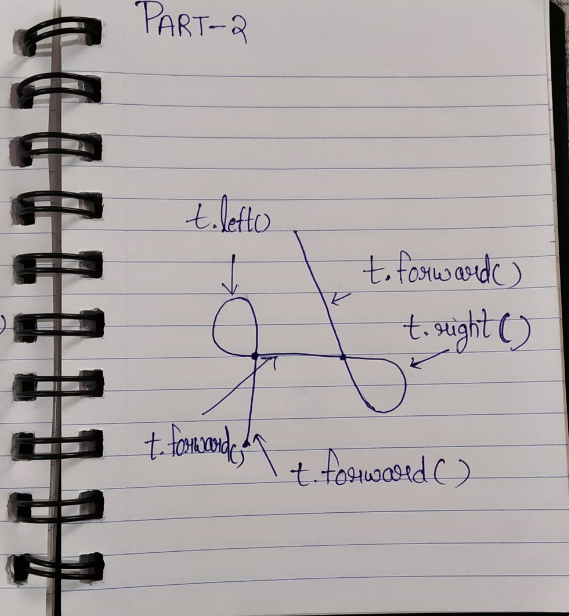 PART-2
t.left()
t.forward()
t.right()
t.forward()
t.forward()